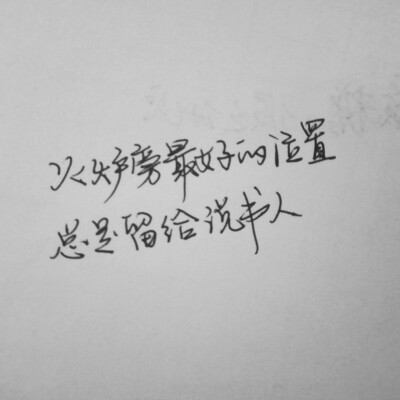 火炉旁最好的位置
总是留给说书人